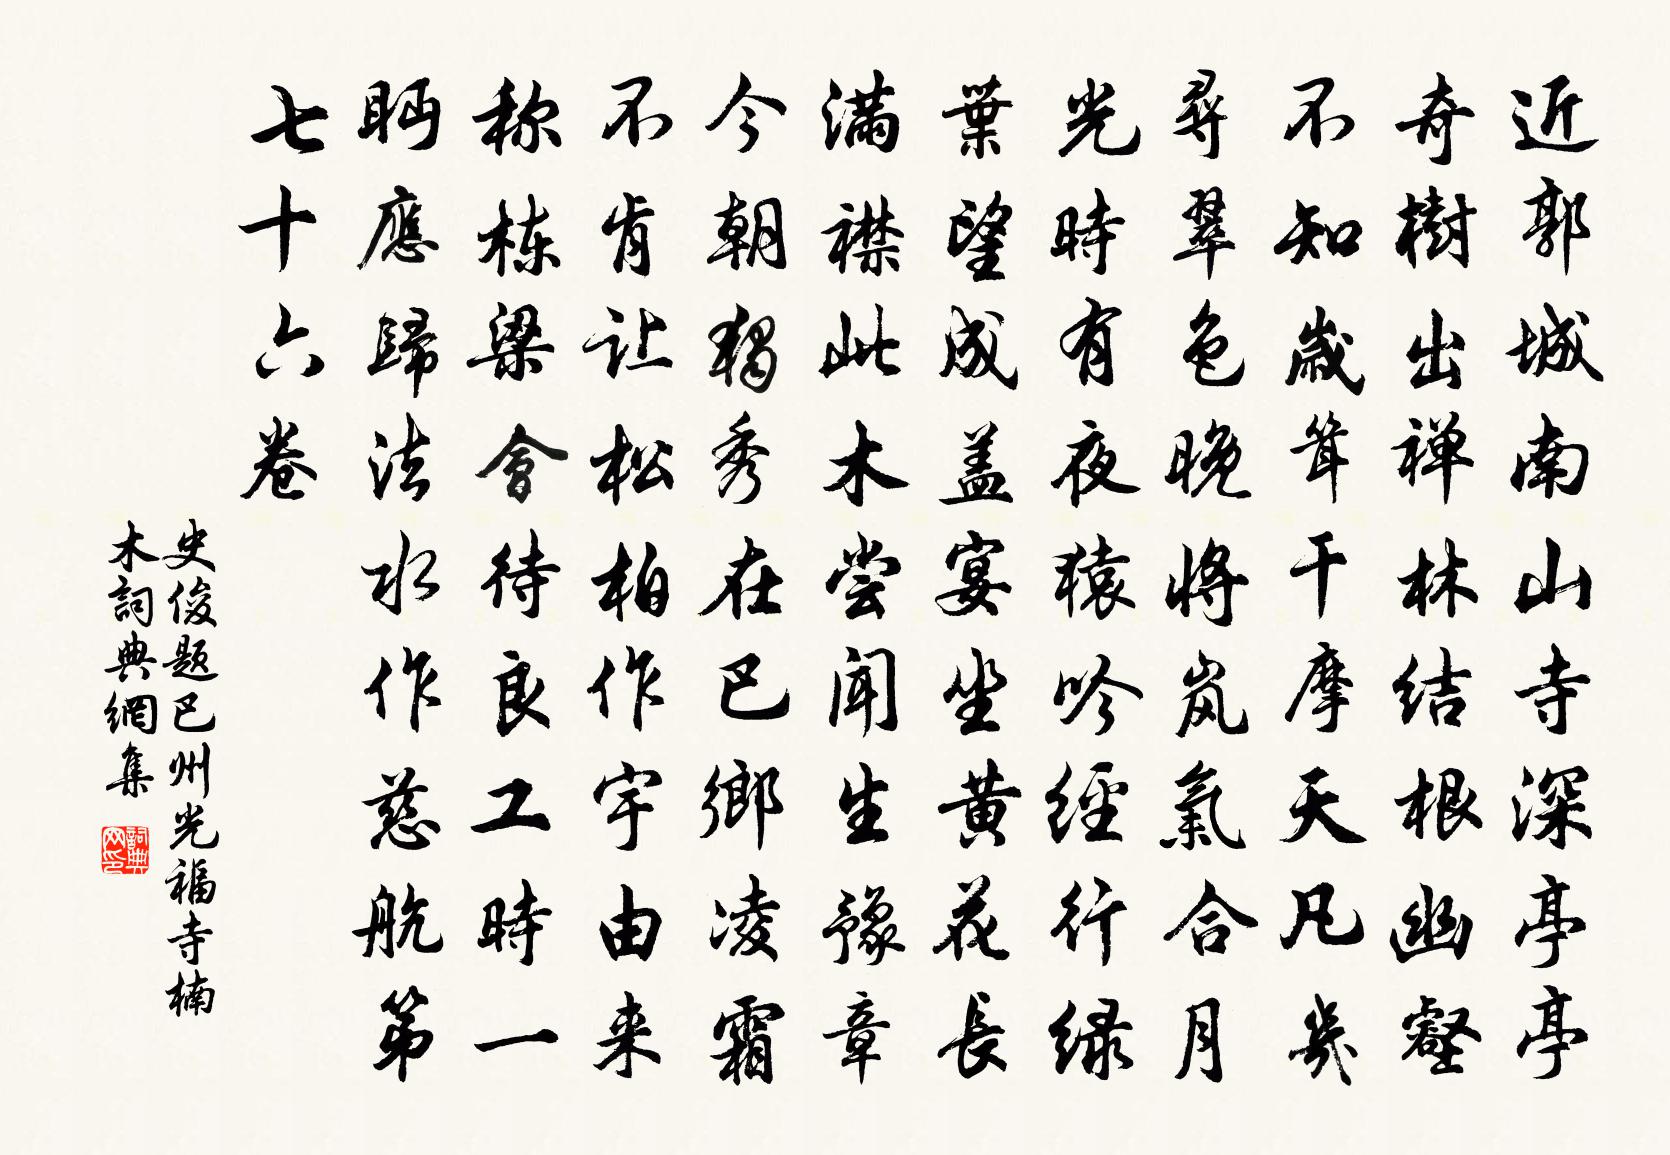 近郭城南山寺深亭亭
奇樹出禅林结根幽壑
不知歳耸干摩天凡幾
尋翠色晚将岚氣合月
光時有夜猿吟經行绿
葉望成盖宴坐黄花長
满襟此木尝闻生豫章
今朝独秀在巴鄉凌霜
不肯让松柏作宇由来
称栋梁會待良工時一
眄應歸法水作慈航第
七十六卷
史俊题巴州光福寺楠
木詞典網集
詞典网印